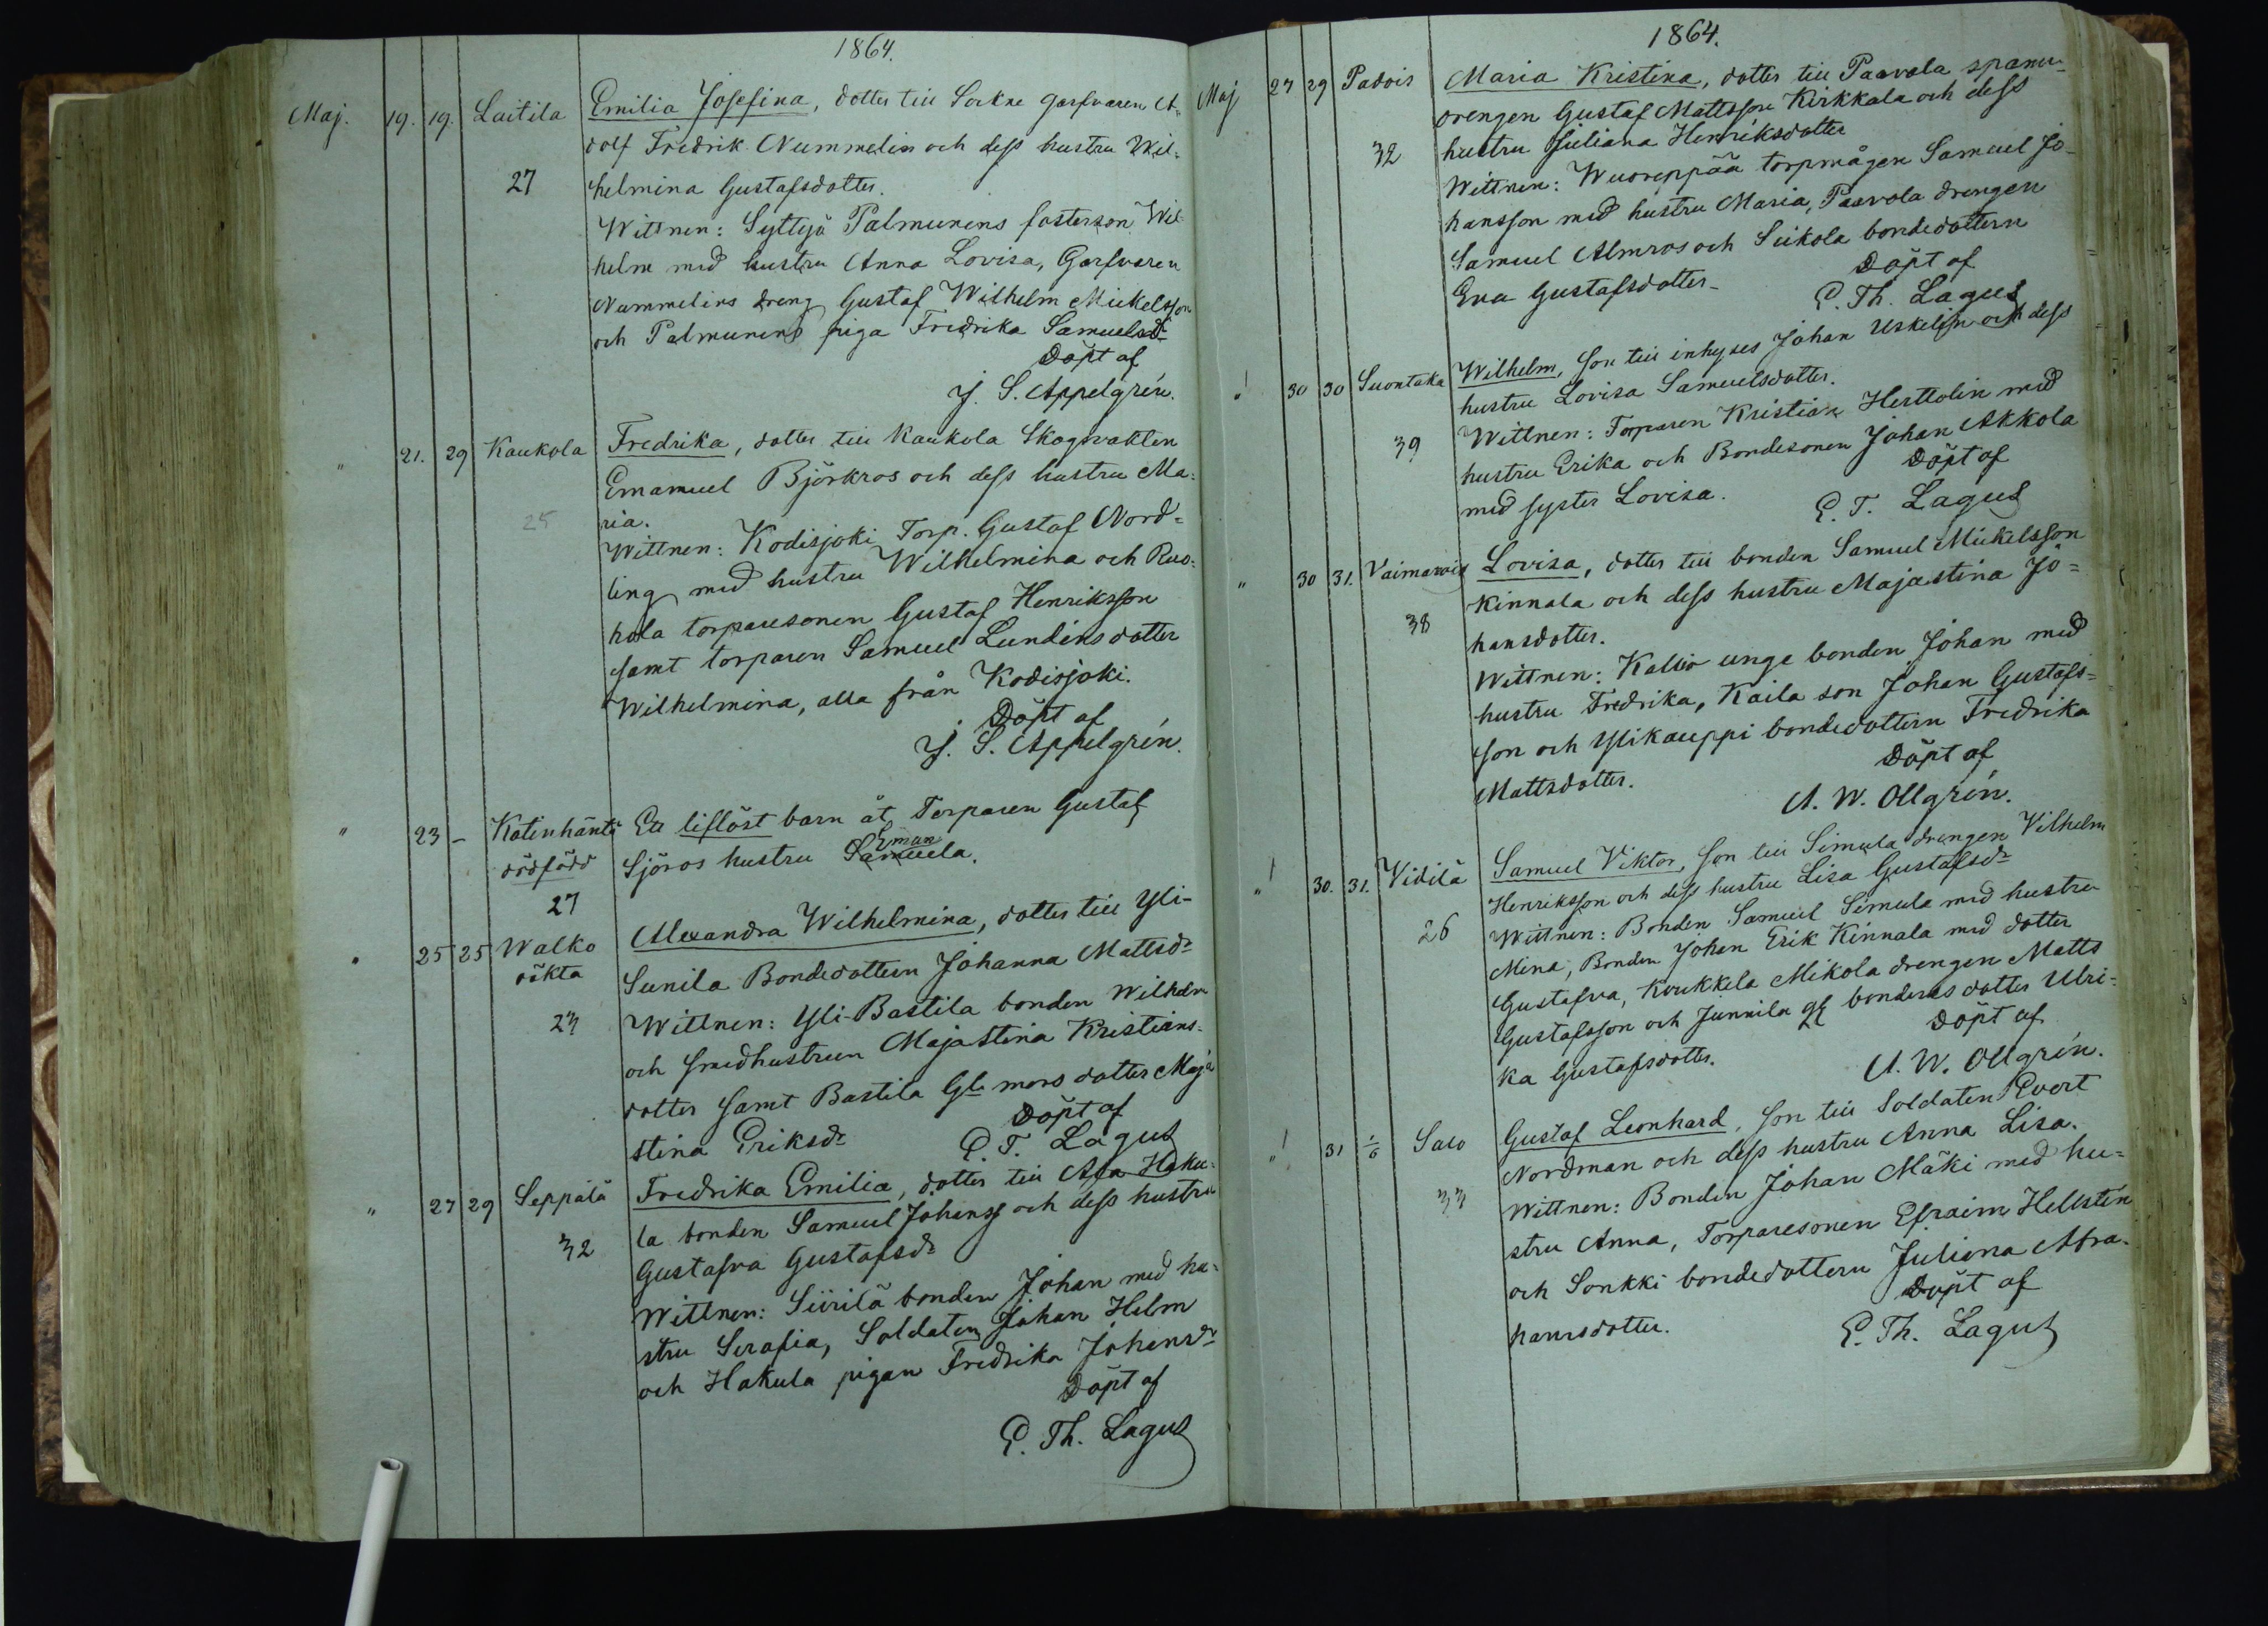 1864.
Maj. 19. 19. Laitila Emilia Josefina, dotter till Sockne garfvaren A-
dolf Fredrik Nummelin och dess hustru Wil-
27 helmina Gustafsdotter.
Wittnen: Syltyä Palmunens fosterson Wil-
helm med hustru Anna Lovisa, Garfvaren
Nummelins dreng Gustaf Wilhelm Mickelsson
och Palmunens piga Fredrika Samuelsdr
Döpt af
J. S. Appelgrén.
" 21. 29 Kaukola Fredrika, dotter till Kaukola Skogsvakten
Emanuel Björkros och dess hustru Ma-
25 ria.
Wittnen: Kodisjoki Torp. Gustaf Nord-
ling med hustru Wilhelmina och Ruo-
hola torparesonen Gustaf Henriksson
samt torparen Samuel Lundins dotter
Wilhelmina, alla från Kodisjoki.
Döpt af
J. S. Appelgrén.
" 23 - Katinhäntä Ett liflöst barn åt Torparen Gustaf
dödfödd Sjöros hustru Samuela. Eman
27
" 25 25 Walko Alexandra Wilhelmina, dotter till Yli-
oäkta Sunila Bondedottern Johanna Mattsdr
23 Wittnen: Yli-Bastila bonden Wilhelm
och smedhustrun Majastina Kristians-
dotter samt Bastila Gl. mors dotter Maja
stina Eriksdr Döpt af
E. T. Lagus
" 27 29 Seppälä Fredrika Emilia, dotter till Ala Haku-
la bonden Samuel Johanss och dess hustru
32 Gustafva Gustafsdr
Wittnen: Siirilä bonden Johan med hu-
stru Serafia, Soldaten Johan Helm
och Hakula pigan Fredrika Johansdr
Döpt af
E. Th. Lagus
1864.
Maj 27 29 Padois Maria Kristina, dotter till Paavola spanu-
drengen Gustaf Mattsson Kirkkala och dess
32 hustru Juliana Henriksdotter
Wittnen: Wuoreppää torpmågen Samuel Jo-
hansson med hustru Maria, Paavola drengen
Samuel Almros och Seikola bondedottern
Eva Gustafsdotter. Döpt af
E. Th. Lagus
" 30 30 Suontaka Wilhelm, son till inhyses Johan Uskelin och dess
hustru Lovisa Samuelsdotter.
39 Wittnen: Torparen Kristian Herttolin med
hustru Erika och Bondesonen Johan Akkola
med syster Lovisa. Döpt af
E. T. Lagus
" 30 31. Vaimarois Lovisa, dotter till bonden Samuel Mickelsson
Kinnala och dess hustru Majastina Jo-
38 hansdotter.
Wittnen: Kallio unge bonden Johan med
hustru Fredrika, Kaila son Johan Gustafs-
son och Ylikauppi bondedottern Fredrika
Mattsdotter. Döpt af
A. W. Ollgrén.
" 30. 31. Vidilä Samuel Viktor, son till Simula drengen Vilhelm
Henriksson och dess hustru Lisa Gustafsdr
26 Wittnen: Bonden Samuel Simula med hustru
Mina, Bonden Johan Erik Kinnala med dotter
Gustafva, Koukkela Mikola drengen Matts
Gustafsson och Junnila gl. bondens dotter Ulri-
ka Gustafsdotter. Döpt af
A. W. Ollgrén.
" 31 1/6 Salo Gustaf Leonhard, son till Soldaten Evert
Nordman och dess hustru Anna Lisa.
33 Wittnen: Bonden Johan Mäki med hu-
stru Anna, Torparesonen Efraim Hellstén
och Sonkki bondedottern Juliana Abra-
hamsdotter. Döpt af
E. Th. Lagus